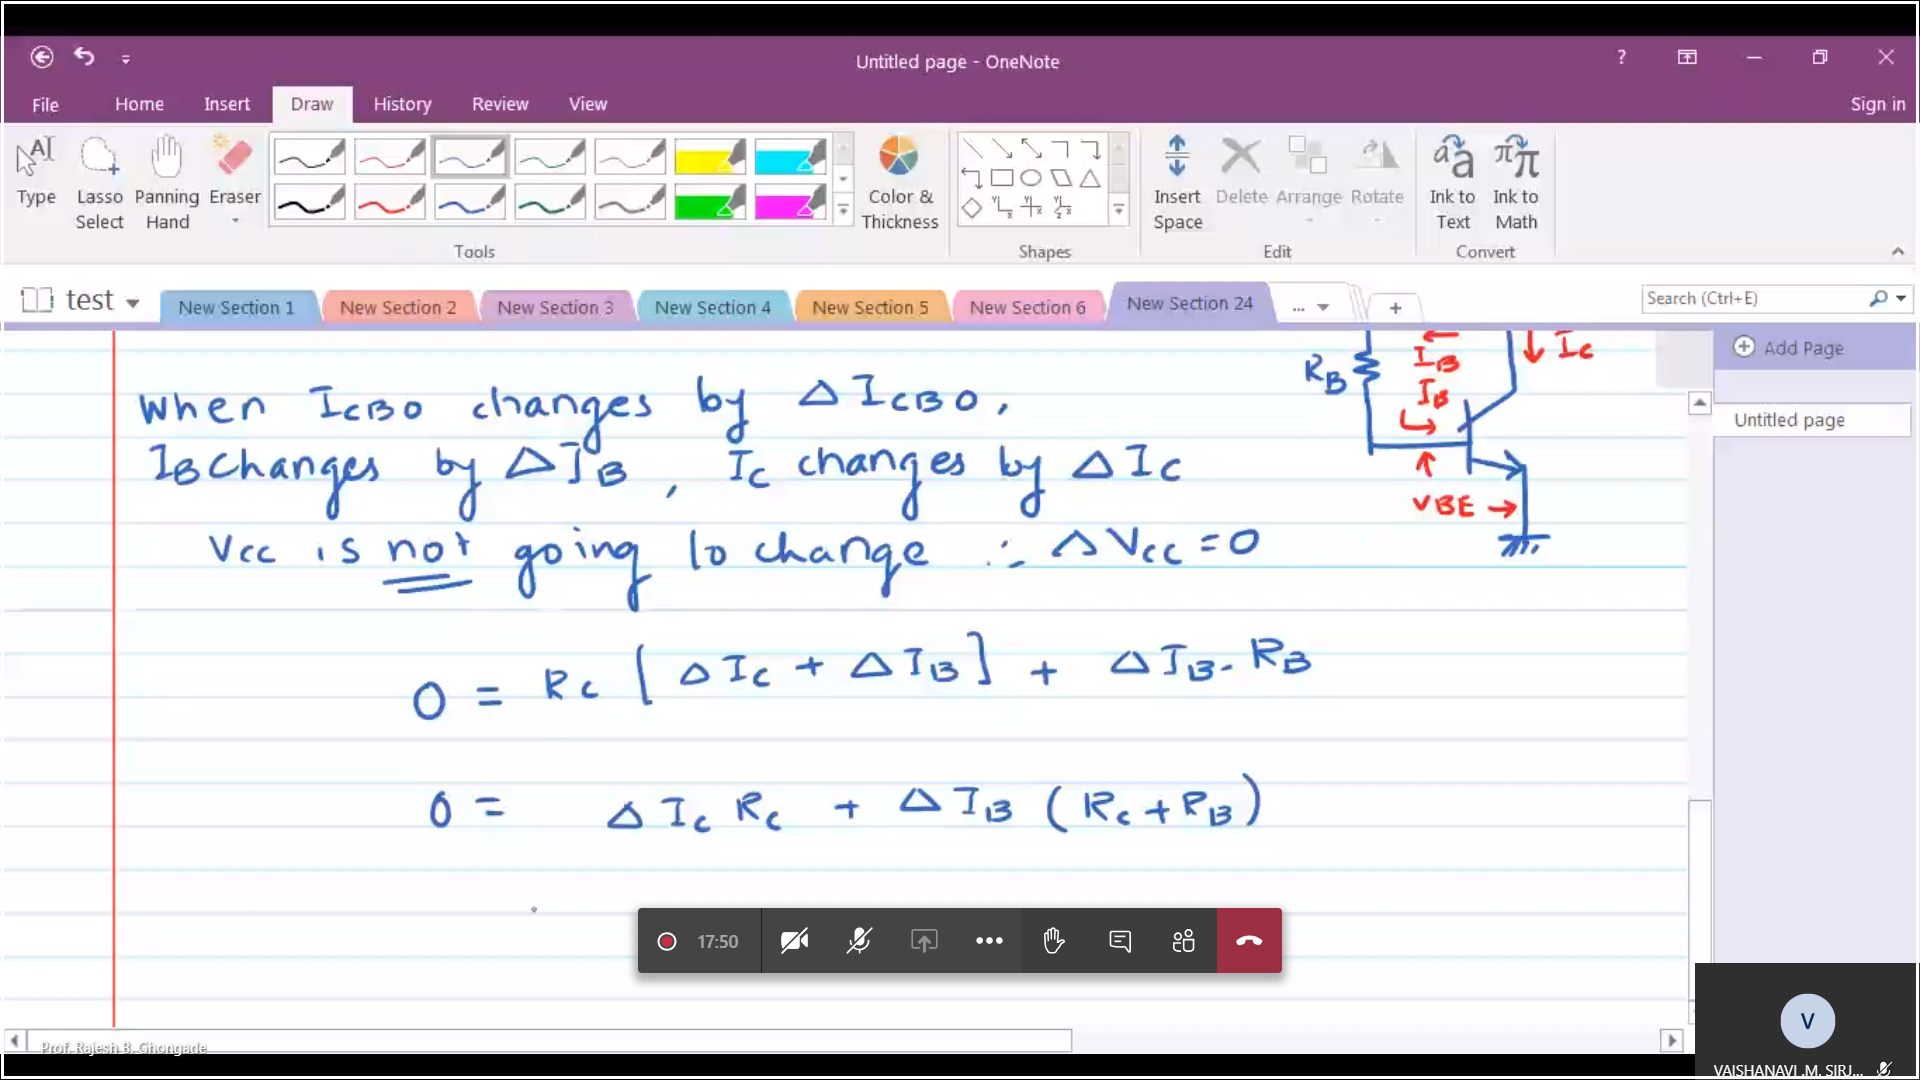 Untitled page - OneNote
?
File Home Insert Draw History Review View
Sign in
Type
Lasso Select
Panning Hand
Eraser
Color & Thickness
Insert Space
Delete
Arrange
Rotate
Ink to Text
Ink to Math
Tools
Shapes
Edit
Convert
test
New Section 1
New Section 2
New Section 3
New Section 4
New Section 5
New Section 6
New Section 24
...
+
Search (Ctrl+E)
Add Page
Untitled page
RB
IB
IB
IC
VBE
When ICBO changes by ΔICBO,
IB changes by ΔIB, IC changes by ΔIC
VCC is not going to change ∴ ΔVCC = 0
0 = RC [ΔIC + ΔIB] + ΔIB. RB
0 = ΔIC RC + ΔIB (RC + RB)
17:50
Prof. Rajesh B. Ghongade
V
VAISHANAVI .M. SIRJ...